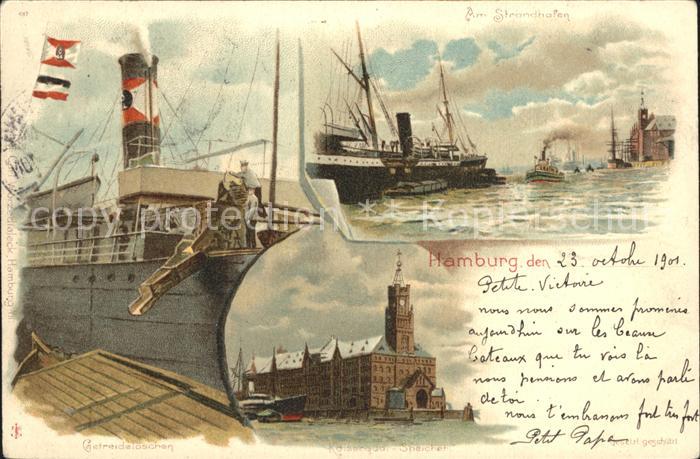 487
Am Strandhafen
copy protection ** Kopierschutz
Hamburg, den 23. octobre 1901.
Petite Victoire
nous nous sommes promenés
aujourd'hui sur les beaux
bateaux que tu vois là
nous pensions et avons parlé
de toi.
nous t'embrassons fort très fort
Petit Papa
Getreidelöschen
Kaiserquai-Speicher
gesetzl. geschützt